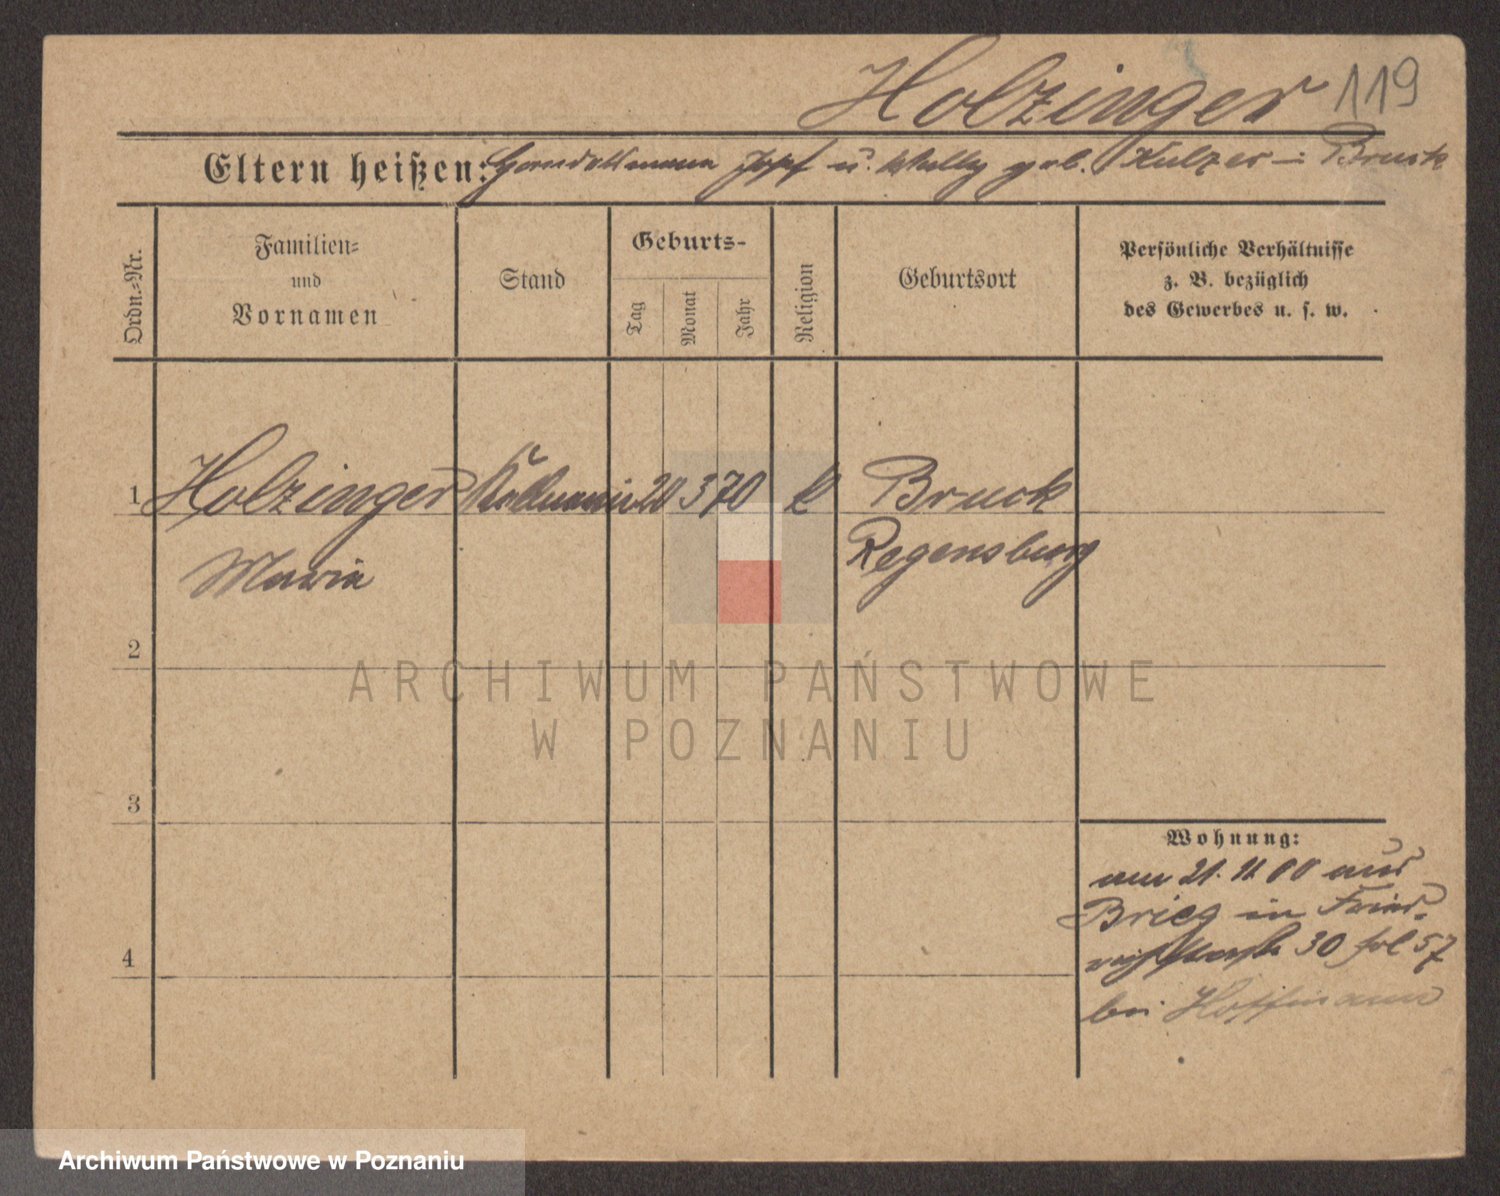 Holzinger 119
Eltern heißen: Josef u. Wally geb. Kulzer - Bruck
Ordn.=Nr.
Familien=
und
Vornamen
Stand
Geburts-
Tag
Monat
Jahr
Religion
Geburtsort
Persönliche Verhältnisse
z. B. bezüglich
des Gewerbes u. s. w.
1 Holzinger Kellnerin 20 3 70 k Bruck
Maria Regensburg
2
3
4
Wohnung:
am 21. 11 00 aus
Brieg in Fried-
richstraße 30 fol 57
bei Hoffmann
ARCHIWUM PAŃSTWOWE
W POZNANIU
Archiwum Państwowe w Poznaniu